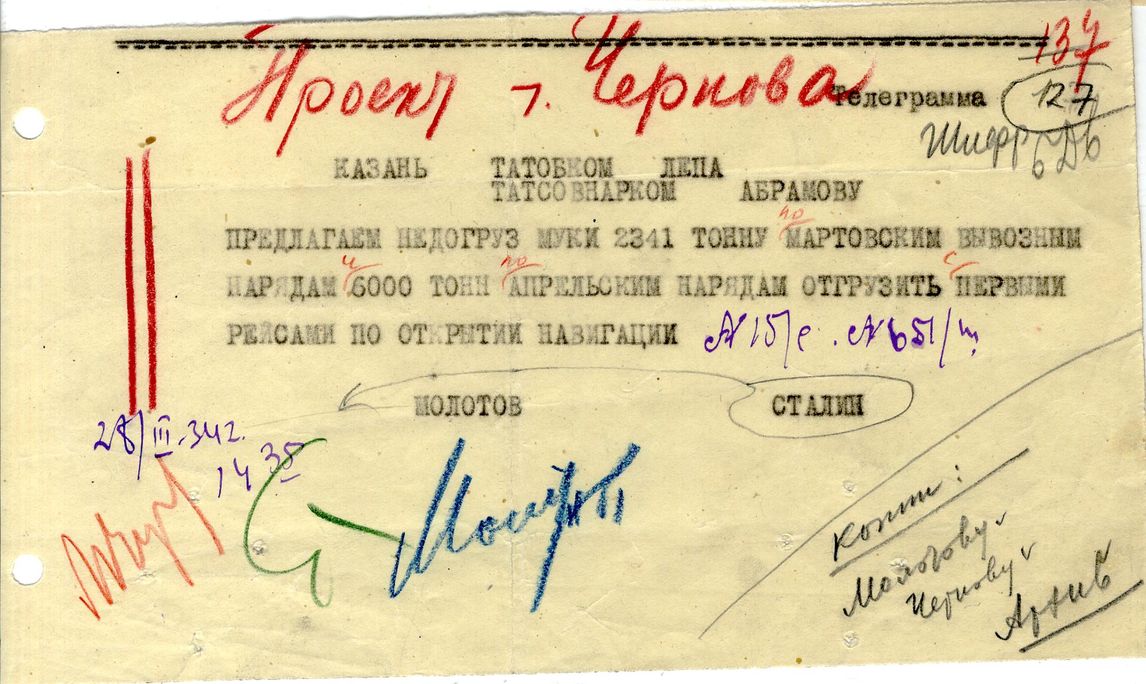 137
Проект т. Чернова
Телеграмма 127
Шифр
КАЗАНЬ ТАТОБКОМ ЛЕПА
ТАТСОВНАРКОМ АБРАМОВУ
по
ПРЕДЛАГАЕМ НЕДОГРУЗ МУКИ 2341 ТОННУ МАРТОВСКИМ ВЫВОЗНЫМ
и по с
НАРЯДАМ 6000 ТОНН АПРЕЛЬСКИМ НАРЯДАМ ОТГРУЗИТЬ ПЕРВЫМИ
РЕЙСАМИ ПО ОТКРЫТИИ НАВИГАЦИИ N 15/с. N 651/ш
МОЛОТОВ СТАЛИН
28/III-34г.
14 35
Копии:
Молотову
Чернову
Архив